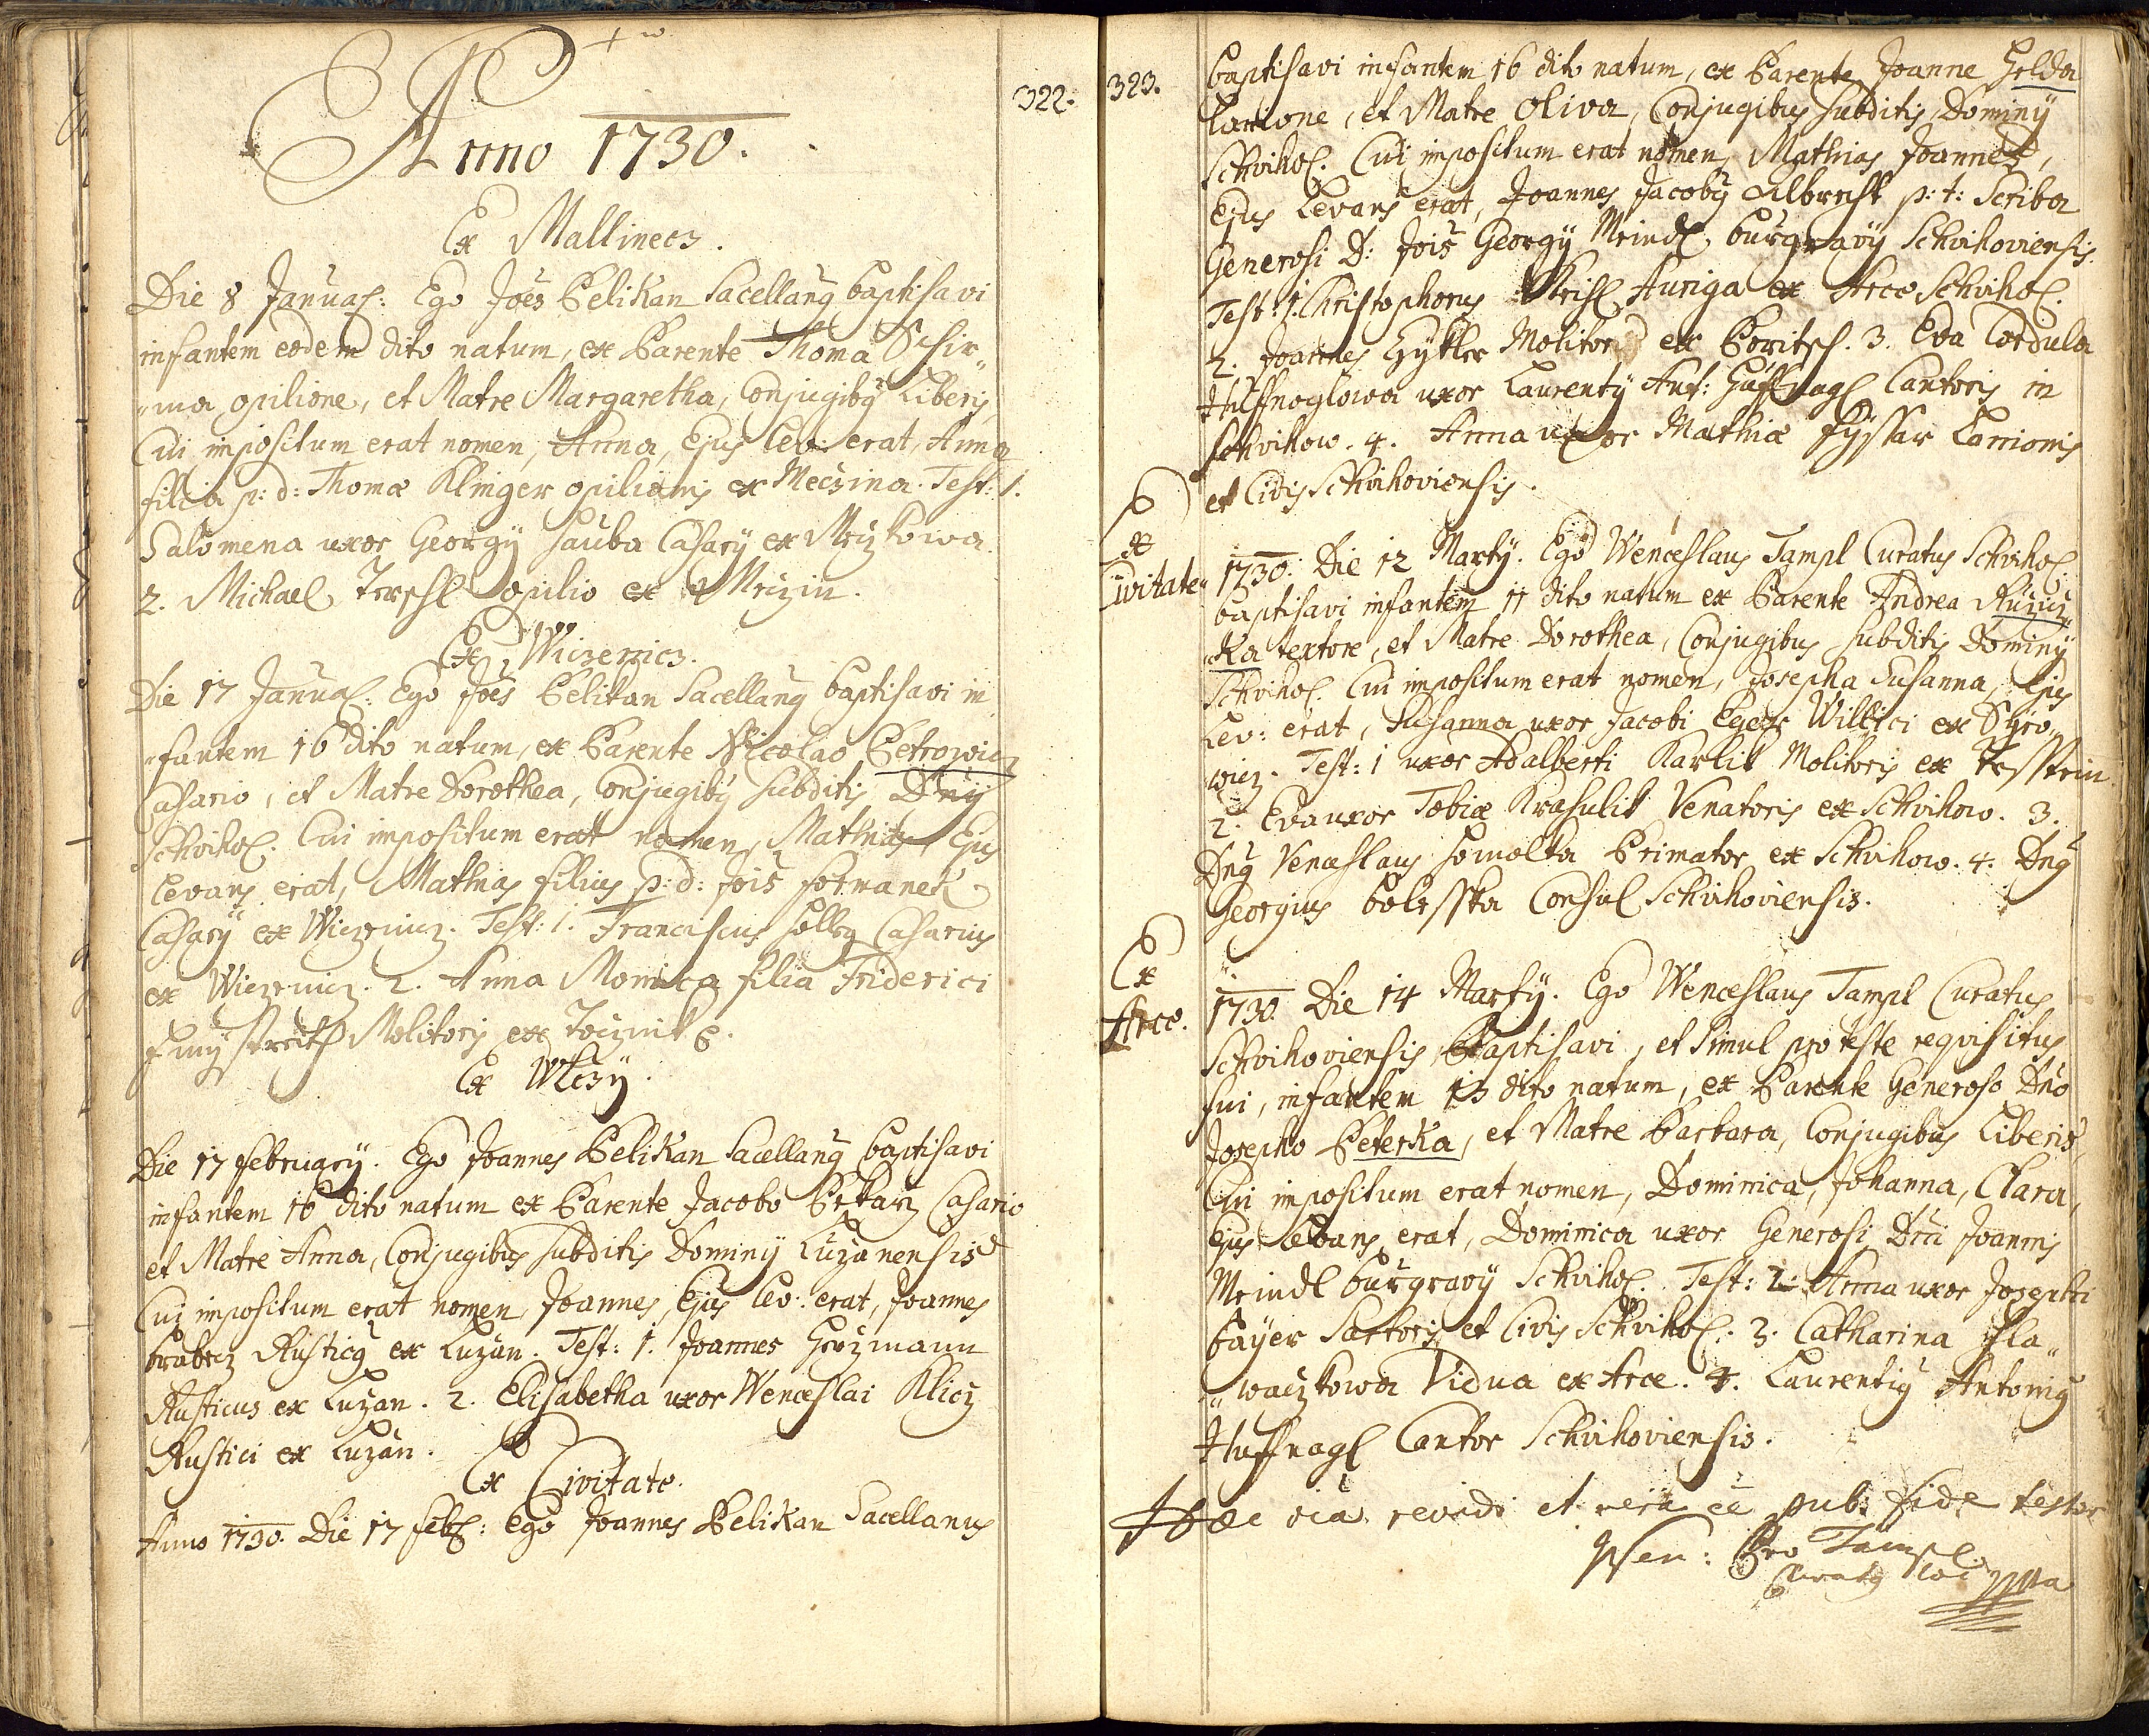 322.
Anno 1730.
Ex Mallinecz.
Die 8 Januar: Ego Joes Pelikan Sacellanus baptisavi
infantem eodem dito natum, ex Parente Thoma Schir„
„ma opilione, et Matre Margaretha, Conjugibus Liberis,
Cui impositum erat nomen, Anna, Ejus lev: erat, Anna
filia p: d: Thomæ Klinger opilionis ex Meczina. Test: 1.
Salomena uxor Georgÿ Casarÿ ex
2. Michael opilio ex Mezin.
Ex Wiczenicz.
Die 17 Januar: Ego Joes Pelikan Sacellanus baptisavi in„
„fantem 16 dito natum, ex Parente Nicolao Petrowicz
Casario, et Matre Dorothea, Conjugibus subditis Dnÿ
Schviho. Cui impositum erat nomen, Mathias, Ejus
levans erat, Mathias filius p: d: Jois formanek
Casarÿ ex Wiczenicz. Test: 1. Franciscus Casarius
ex Wiczenicz. 2. Anna Monica filia Friderici
Molitoris ex
Ex Wlczÿ.
Die 17 februarÿ. Ego Joannes Pelikan Sacellanus baptisavi
infantem 16 dito natum ex Parente Jacobo Pekarz Casario
et Matre Anna, Conjugibus subditis Dominÿ Luzanensis
Cui impositum erat nomen, Joannes, Ejus lev: erat, Joannes
Rusticus ex Luzan. Test: 1. Joannes Herzmann
Rusticus ex Luzan. 2. Elisabetha uxor Wenceslai Klicz
Rustici ex Luzan.
Ex Civitate.
Anno 1730. Die 17 feb: Ego Joannes Pelikan Sacellanus
323.
baptisavi infantem 16 dito natum, ex Parente Joanne Helda
Lanione, et Matre Oliva, Conjugibus subditis, Dominÿ
Schviho. Cui impositum erat nomen, Mathias Joannes,
Ejus Levans erat, Joannes Jacobÿ Albrecht p: t: Scriba
Generosi D: Jois Georgÿ Meindl burgravÿ Schvihoviensis.
Test: 1. Christophorus Auriga ex Arce Schviho.
2. Joannes Molitor ex 3. Eva Cordula
Huffnaglowa uxor Laurentÿ Ant: Huffnagl Cantoris in
Schvihow. 4. Anna uxor Mathiæ Lanionis
et Civis Schvihoviensis.
Ex
Civitate
1730. Die 12 Martÿ. Ego Wenceslaus Tampl Curatus Schviho.
baptisavi infantem 11 dito natum ex Parente Andrea Ruzicz„
„ka textore, et Matre Dorothea, Conjugibus subditis Dominÿ
Schviho. Cui impositum erat nomen, Josepha Susanna, Ejus
Lev: erat, Susanna uxor Jacobi Villici ex
Test: 1 uxor Adalberti Karlik Molitoris ex
2. Eva uxor Tobiæ Krasulik Venatoris ex Schvihow. 3.
Dnus Venceslaus Primator ex Schvihow. 4: Dnus
Georgius Consul Schvihoviensis.
Ex
Arce.
1730. Die 14 Martÿ. Ego Wenceslaus Tampl Curatus
Schvihoviensis, Baptisavi, et simul pro teste requisitus
fui, infantem 13 dito natum, ex Parente Generoso Dno
Josepho Peterka, et Matre Barbara, Conjugibus Liberis,
Cui impositum erat nomen, Dominica, Johanna, Clara,
Ejus Levans erat, Dominica uxor Generosi Dni Joannis
Meindl burgravÿ Schviho. Test: 2. Anna uxor Josephi
bayer Sartoris et Civis Schviho. 3. Catharina Hla„
„waczkowa Vidua ex Arce. 4. Laurentius Antonius
Huffnagl Cantor Schvihoviensis.
Hæc oia revidi et vera ee pub: fide testor
Wen: Tampl
Curatus loci mpria